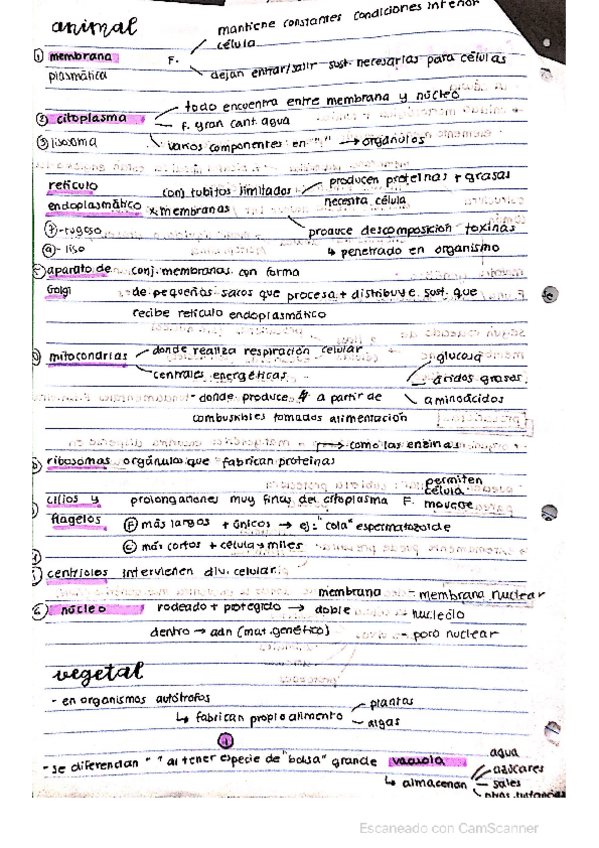 animal
mantiene constantes condiciones interior
célula
① membrana F.
plasmática
dejan entrar/salir sust. necesarias para células
todo encuentra entre membrana y núcleo
② citoplasma F. gran cant. agua
③ lisosoma varios componentes en " " → orgánulos
retículo conj. tubitos limitados producen proteínas + grasas
endoplasmático x membranas necesita célula
⑦ -rugoso produce descomposición toxinas
- liso ↳ penetrado en organismo
aparato de conj. membranas con forma
Golgi de pequeños sacos que procesa + distribuye sust. que
recibe retículo endoplasmático
mitocondrias donde realiza respiración celular glucosa
centrales energéticas ácidos grasos
- donde produce a partir de aminoácidos
combustibles tomados alimentación
→ como las
ribosomas orgánulos que fabrican proteínas
permiten
célula
cilios y prolongaciones muy finas del citoplasma F. moverse
flagelos Ⓕ más largos + únicos → ej: "cola" espermatozoide
Ⓒ más cortos + célula > miles
centriolos intervienen div. celular
membrana - membrana nuclear
núcleo rodeado + protegido → doble nucléolo
dentro → adn (mat. genético) - poro nuclear
vegetal
- en organismos autótrofos
↳ fabrican propio alimento plantas
algas
- se diferencian " " al tener especie de "bolsa" grande vacuola agua
azúcares
↳ almacenan sales
otras sustancias
Escaneado con CamScanner